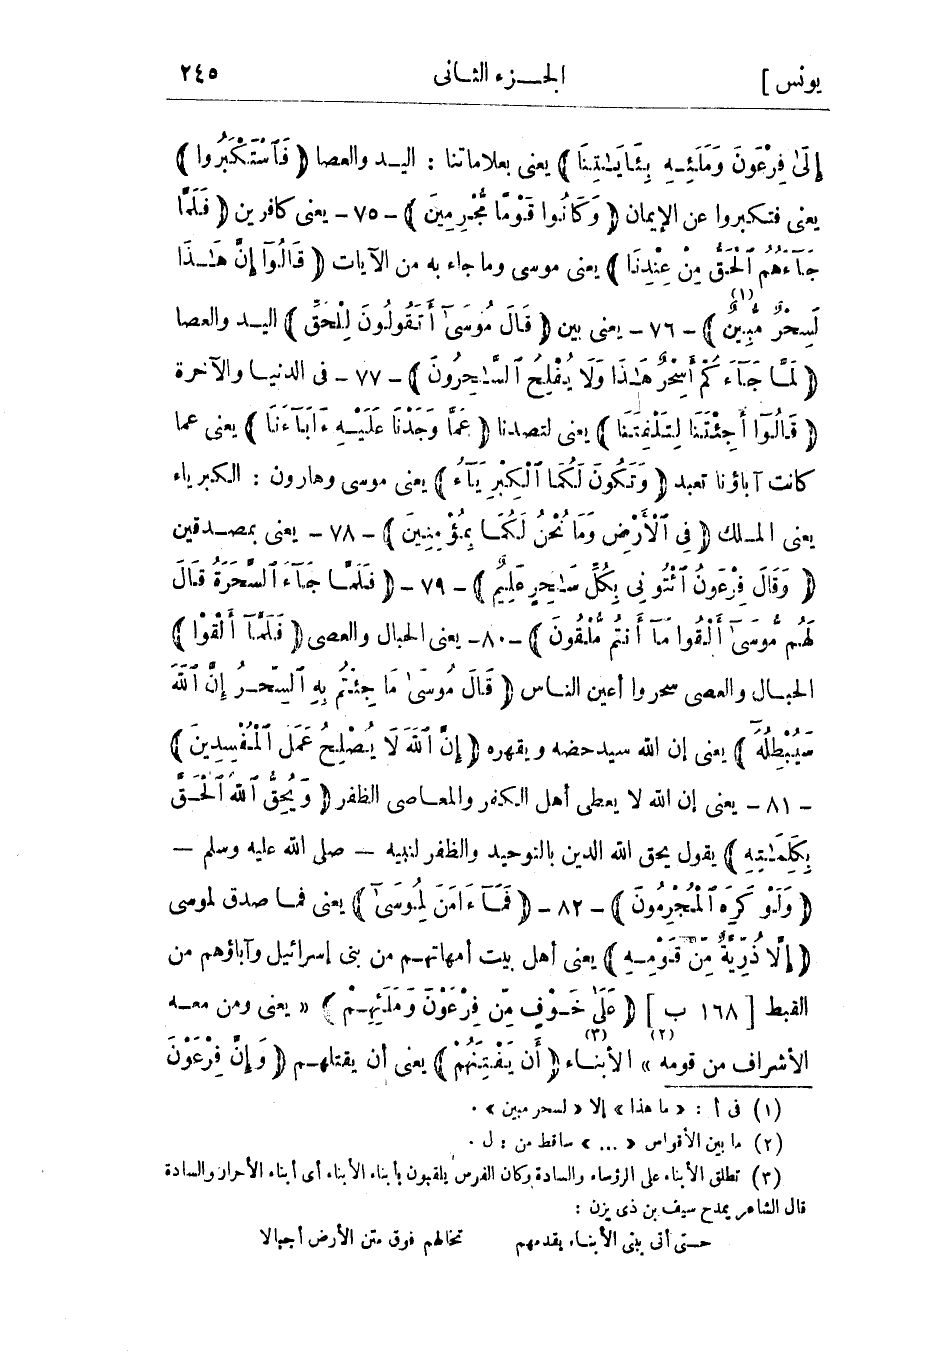 يونس] الجـــزء الثـانى ٢٤٥
إِلَىٰ فِرْعَوْنَ وَمَلَئِـهِ بِـَٔايَـٰتِنَا ﴾ يعنى بعلاماتنا : اليـد والعصا ﴿ فَٱسْتَكْبَرُوا ﴾
يعنى فتكبروا عن الإيمان ﴿ وَكَانُوا قَوْمًا مُّجْرِمِينَ ﴾ - ٧٥ - يعنى كافرين ﴿ فَلَمَّا
جَآءَهُمُ ٱلْحَقُّ مِنْ عِندِنَا ﴾ يعنى موسى وما جاء به من الآيات ﴿ قَالُوٓا إِنَّ هَـٰـذَا
لَسِحْرٌ مُّبِينٌ (١) ﴾ - ٧٦ - يعنى بين ﴿ قَالَ مُوسَىٰٓ أَتَقُولُونَ لِلْحَقِّ ﴾ اليـد والعصا
﴿ لَمَّا جَآءَكُمْ أَسِحْرٌ هَـٰذَا وَلَا يُفْلِحُ ٱلسَّـٰحِرُونَ ﴾ - ٧٧ - فى الدنيـا والآخرة
﴿ قَالُوٓا أَجِئْتَنَا لِتَلْفِتَنَا ﴾ يعنى لتصدنا ﴿ عَمَّا وَجَدْنَا عَلَيْـهِ ءَابَآءَنَا ﴾ يعنى عما
كانت آباؤنا تعبد ﴿ وَتَكُونَ لَكُمَا ٱلْكِبْرِيَآءُ ﴾ يعنى موسى وهارون : الكبرياء
يعنى المـلك ﴿ فِى ٱلْأَرْضِ وَمَا نَحْنُ لَكُمَـا بِمُؤْمِنِينَ ﴾ - ٧٨ - يعنى بمصـدقين
﴿ وَقَالَ فِرْعَوْنُ ٱئْتُونِى بِكُلِّ سَـٰحِرٍ عَلِيمٍ ﴾ - ٧٩ - ﴿ فَلَمَّـا جَآءَ ٱلسَّحَرَةُ قَالَ
لَهُم مُّوسَىٰٓ أَلْقُوا مَآ أَنتُم مُّلْقُونَ ﴾ - ٨٠ - يعنى الحبال والعصى ﴿ فَلَمَّآ أَلْقَوْا ﴾
الحبـال والعصى سحروا أعين النـاس ﴿ قَالَ مُوسَىٰ مَا جِئْتُم بِهِ ٱلسِّحْـرُ إِنَّ ٱللَّهَ
سَيُبْطِلُهُٓ ﴾ يعنى إن الله سيدحضه ويقهره ﴿ إِنَّ ٱللَّهَ لَا يُصْلِحُ عَمَلَ ٱلْمُفْسِدِينَ ﴾
- ٨١ - يعنى إن الله لا يعطى أهل الكفر والمعـاصى الظفر ﴿ وَيُحِقُّ ٱللَّهُ ٱلْحَـقَّ
بِكَلِمَـٰتِهِ ﴾ يقول يحق الله الدين بالتوحيد والظفر لنبيه — صلى الله عليه وسلم —
﴿ وَلَوْ كَرِهَ ٱلْمُجْرِمُونَ ﴾ - ٨٢ - ﴿ فَمَآ ءَامَنَ لِمُوسَىٰٓ ﴾ يعنى فمـا صدق لموسى
﴿ إِلَّا ذُرِّيَّةٌ مِّن قَوْمِـهِ ﴾ يعنى أهل بيت أمهاتهـم من بنى إسرائيل وآباؤهم من
القبط [ ١٦٨ ب ] ﴿ عَلَىٰ خَـوْفٍ مِّن فِرْعَوْنَ وَمَلَئِهِـمْ ﴾ « يعنى ومن معـه
الأشراف من قومه » (٢) الأبنـاء (٣) ﴿ أَن يَفْتِنَهُمْ ﴾ يعنى أن يقتلهـم ﴿ وَإِنَّ فِرْعَوْنَ
(١) فى أ : « ما هذا » إلا « لسحر مبين » .
(٢) ما بين الأقواس « ... » ساقط من : ل .
(٣) تطلق الأبناء على الرؤساء والسادة وكان الفرس يلقبون بأبناء الأبناء أى أبناء الأحرار والسادة
قال الشاعر يمدح سيف بن ذى يزن :
حـتى أتى ببنى الأبنـاء يقدمهم تخالهم فوق متن الأرض أجبالا